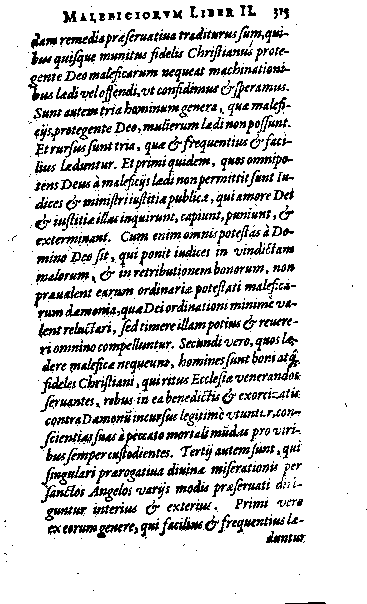 MALEFICIORVM LIBER II. 315
dam remedia præseruatiua traditurus sum, qui-
bus quisque munitus fidelis Christianus prote-
gente Deo maleficarum nequeat machinationi-
bus lædi vel offendi, vt confidimus & speramus.
Sunt autem tria hominum genera, quæ malefi-
cijs, protegente Deo, mulierum lædi non possunt.
Et rursus sunt tria, quæ & frequentius & faci-
lius læduntur. Et primi quidem, quos omnipo-
tens Deus à maleficijs lædi non permittit sunt Iu-
dices & ministri iustitiæ publicæ, qui amore Dei
& iustitiæ illas inquirunt, capiunt, puniunt, &
exterminant. Cum enim omnis potestas à Do-
mino Deo sit, qui ponit iudices in vindictam
malorum, & in retributionem bonorum, non
præualent earum ordinariæ potestati malefica-
rum dæmonia, quæ Dei ordinationi minimè va-
lent reluctari, sed timere illam potius & reuere-
ri omnino compelluntur. Secundi vero, quos læ-
dere maleficæ nequeunt, homines sunt boni atq́;
fideles Christiani, qui ritus Ecclesiæ venerandos
seruantes, rebus in ea benedictis & exorcizatis
contra Dæmonij incursus legitimè vtuntur, con-
scientias suas à peccato mortali mūdas pro viri-
bus semper custodientes. Tertij autem sunt, qui
singulari prærogatiua diuinæ miserationis per
sanctos Angelos varijs modis præseruati diri-
guntur interius & exterius. Primi vero
ex eorum genere, qui facilius & frequentius læ-
duntur